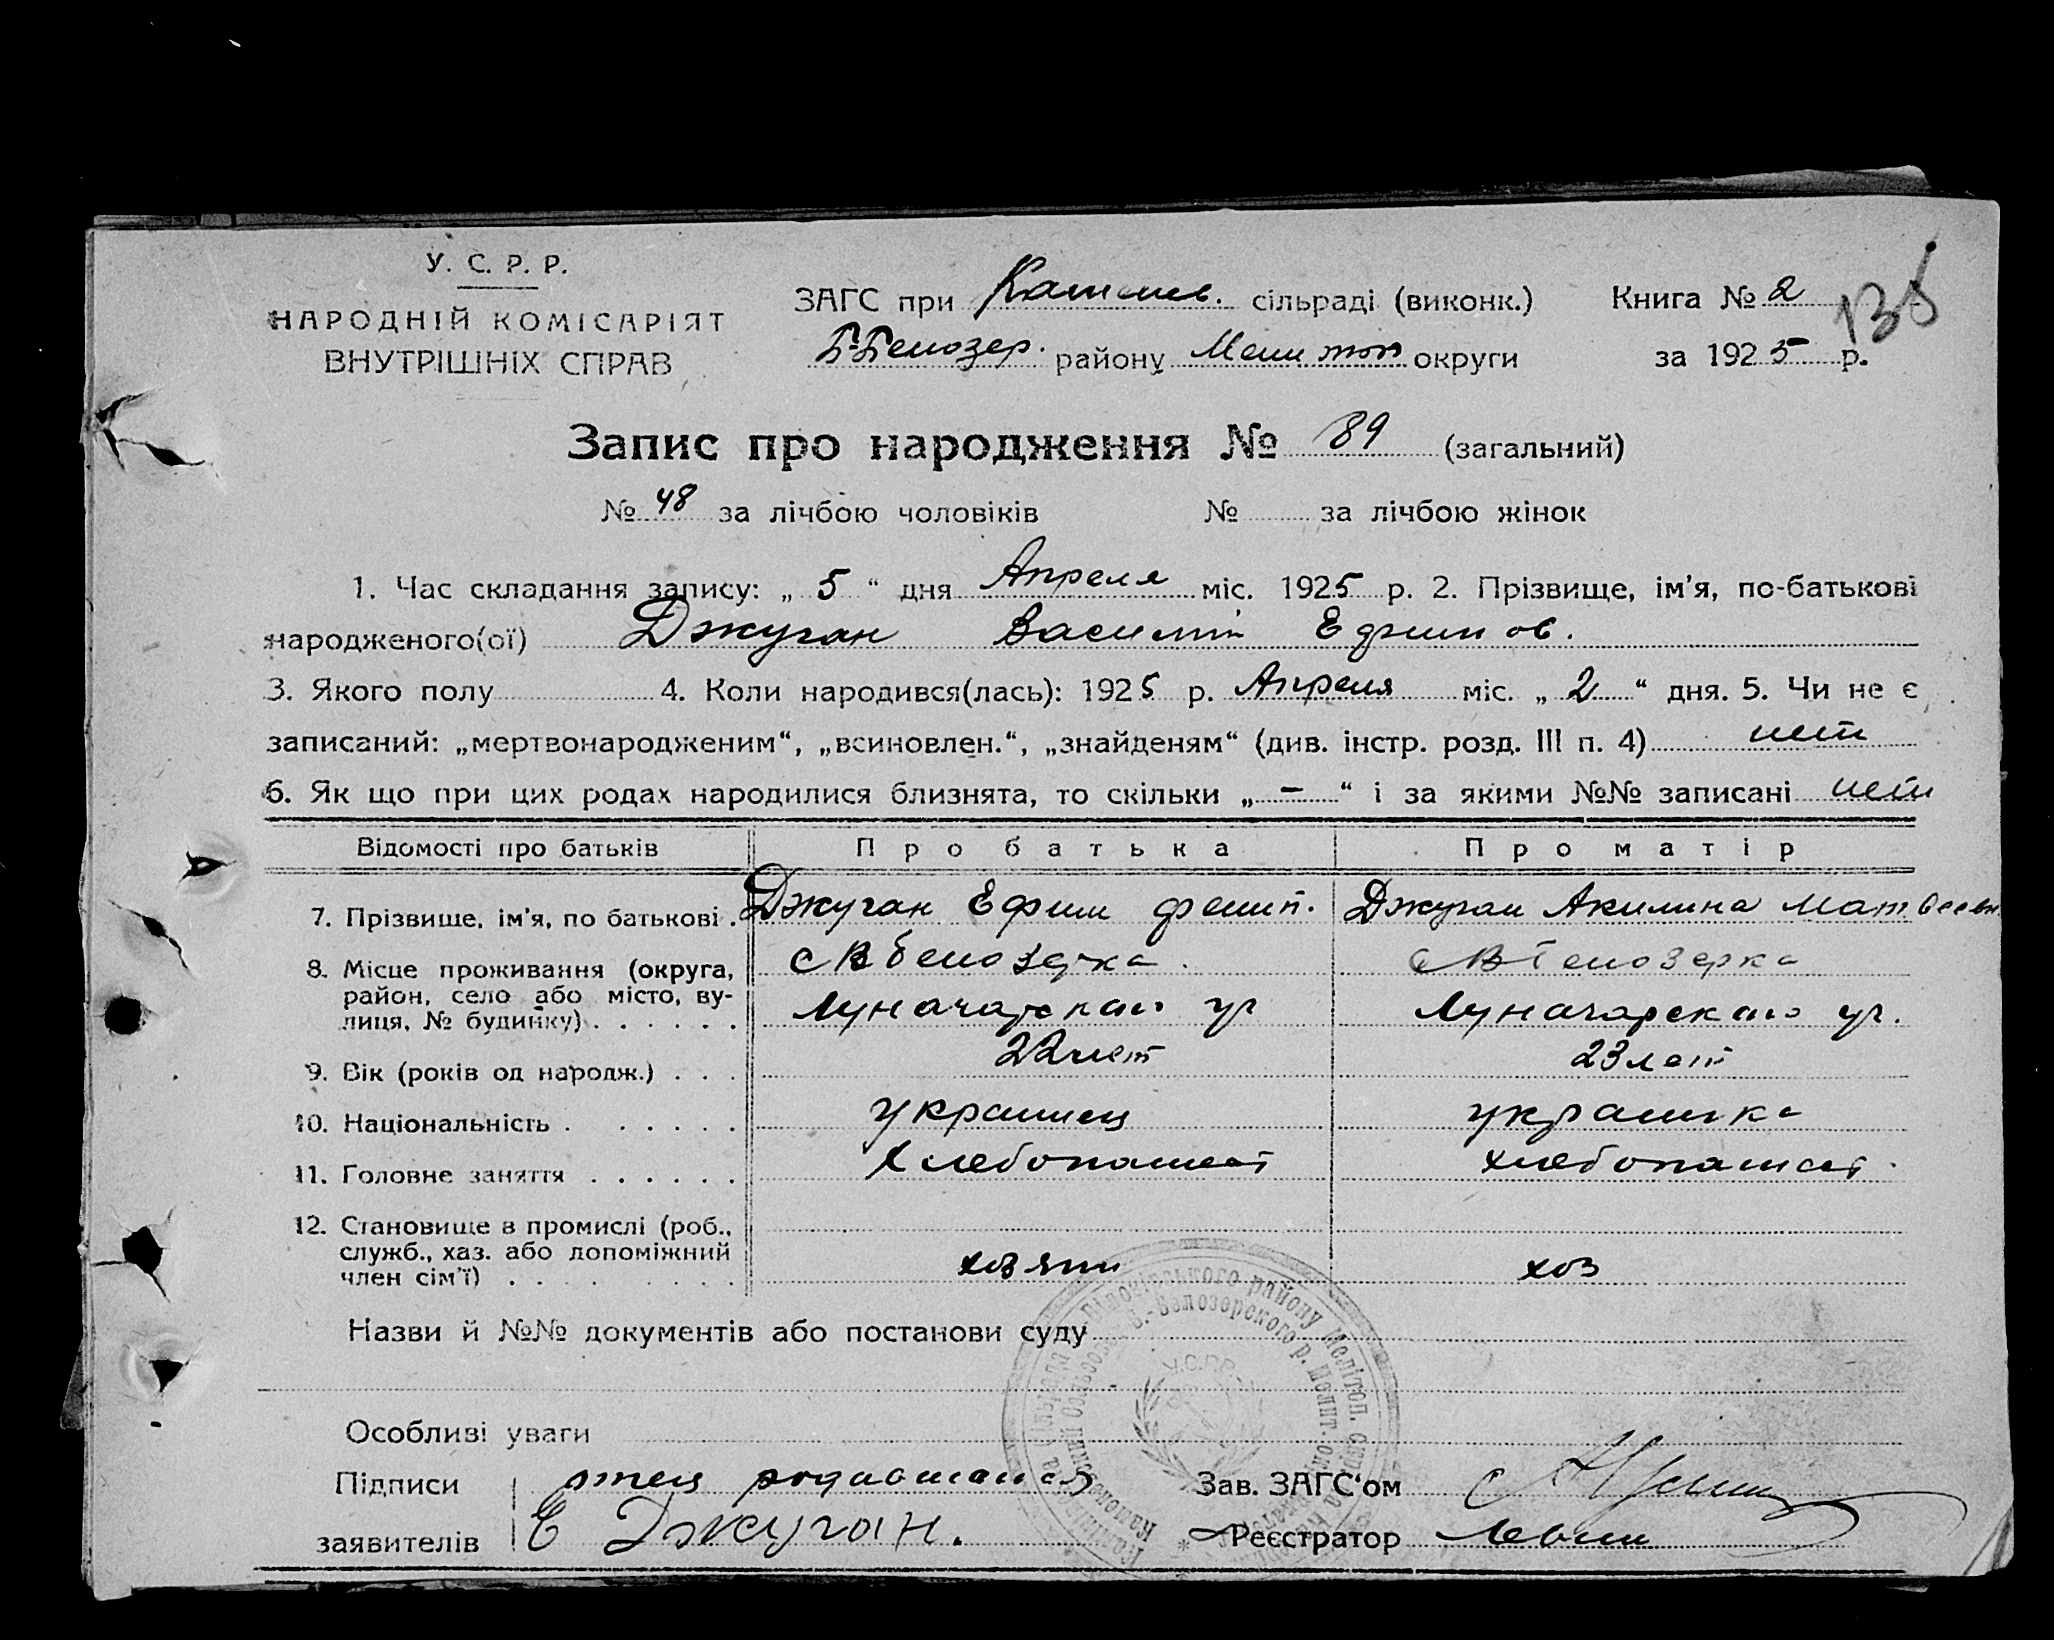 У. С. Р. Р.
НАРОДНІЙ КОМІСАРІЯТ
ВНУТРІШНІХ СПРАВ
ЗАГС при сільраді (виконк.)
Б-Белозер. району Мелитоп округи
Книга № 2
за 1925 р.
Запис про народження № 89 (загальний)
№ 48 за лічбою чоловіків № за лічбою жінок
1. Час складання запису: „ 5 “ дня Апреля міс. 1925 р. 2. Прізвище, ім’я, по-батькові
народженого(ої) Джуган Василій Ефимов.
3. Якого полу 4. Коли народився(лась): 1925 р. Апреля міс. „ 2 “ дня. 5. Чи не є
записаний: „мертвонародженим“, „всиновлен.“, „знайденям“ (див. інстр. розд. III п. 4) нет
6. Як що при цих родах народилися близнята, то скільки „ — “ і за якими №№ записані нет
Відомості про батьків Про батька Про матір
7. Прізвище, ім’я, по батькові . Джуган Ефим Филип. Джуган Акилина Матвеевн
8. Місце проживання (округа,
район, село або місто, вулиця, № будинку) . . . . . . с В Белозерка Луначарская ул с В Белозерка Луначарская ул.
9. Вік (років од народж.) . . . 22 лет 23 лет
10. Національність . . . . . . украинец украинка
11. Головне заняття . . . . . . хлебопашест хлебопашест.
12. Становище в промислі (роб.,
служб., хаз. або допоміжний
член сім’ї) . . . . . . . . хозяин хоз
Назви й №№ документів або постанови суду
Особливі уваги
Підписи заявителів отец родившагося
Е Джуган.
Зав. ЗАГС‘ом
Реєстратор
У.С.Р.Р.